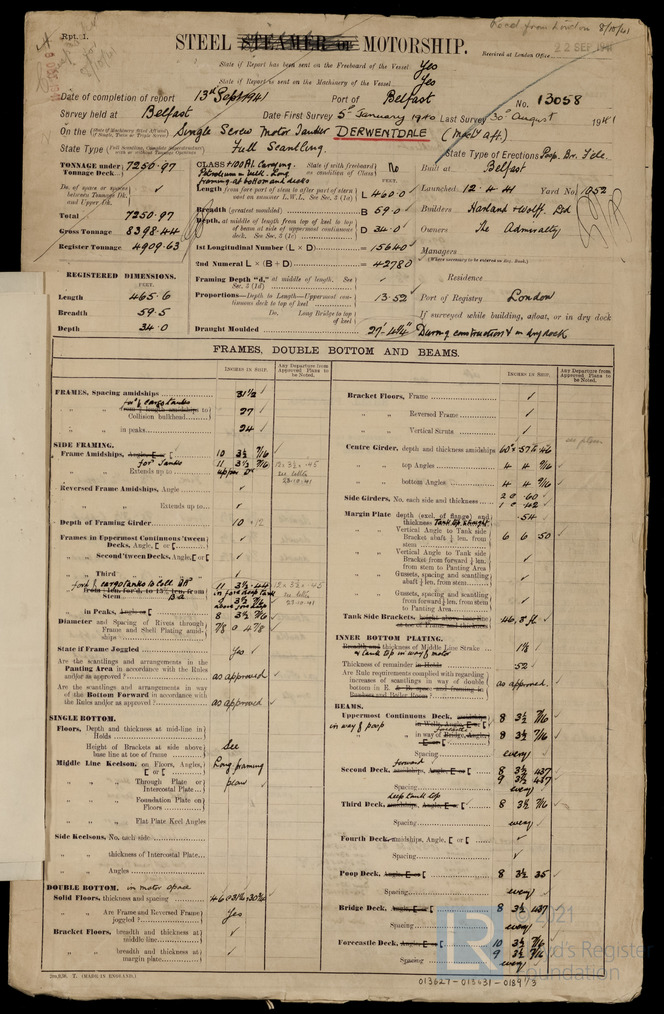 Rpt. 1.
Recd from London 8/10/41
STEEL STEAMER or MOTORSHIP.
Received at London Office
22 SEP 1941
State if Report has been sent on the Freeboard of the Vessel Yes
State if Report is sent on the Machinery of the Vessel Yes
Date of completion of report 13th Sept 1941 Port of Belfast No. 13058
Survey held at Belfast Date First Survey 5th January 1940 Last Survey 30th August 1941
On the Single Screw Motor Tanker DERWENTDALE (Mach'y aft.)
State Type Full Scantling. State Type of Erections Poop. Br. F'cle.
TONNAGE under Tonnage Deck 7250.97
Do. of space or spaces between Tonnage Dk. and Upper Dk.
Total 7250.97
Gross Tonnage 8398.44
Register Tonnage 4909.63
REGISTERED DIMENSIONS.
FEET.
Length 465.6
Breadth 59.5
Depth 34.0
CLASS +100A1 Carrying Petroleum in bulk. Long framing at bottom and decks
State if with freeboard as condition of Class No
FEET.
Length from fore part of stem to after part of stern post on summer L.W.L. See Sec. 3 (1a) L 460.0
Breadth (greatest moulded) B 59.0
Depth, at middle of length from top of keel to top of beam at side of uppermost continuous deck. See Sec. 3 (1c) D 34.0
1st Longitudinal Number (L × D) = 15640
2nd Numeral L × (B + D) = 42780
Framing Depth "d," at middle of length. See Sec. 3 (1d)
Proportions—Depth to Length—Uppermost continuous deck to top of keel 13.52
Do. Long Bridge to top of keel
Draught Moulded 27'-4¾"
Built at Belfast
Launched 12.4.41 Yard No. 1052
Builders Harland & Wolff. Ltd
Owners The Admiralty
Managers
(Where necessary to be entered in Reg. Book.)
Residence
Port of Registry London
If surveyed while building, afloat, or in dry dock
During construction & in dry dock
FRAMES, DOUBLE BOTTOM AND BEAMS.
INCHES IN SHIP.
Any Departure from Approved Plans to be Noted.
FRAMES, Spacing amidships 31½
for'd cargo tanks to Collision bulkhead 27
" " in peaks 24
SIDE FRAMING.
Frame Amidships, Angle, E or [ 10 3½ 7/16
for' Tanks 11 3½ 7/16
" " Extends up to upper dk
12 x 3½ x .45 see letter 23.10.41
Reversed Frame Amidships, Angle
" " " Extends up to
Depth of Framing Girder 10 .12
Frames in Uppermost Continuous 'tween Decks, Angle, [ or [
" Second 'tween Decks, Angle, [ or [
" Third " " "
for'd cargo tanks to Coll Bd 11 3½ .44
in fore deep tank
12 x 3½ x .45 see letter 23.10.41
above fore deep
" in Peaks, Angle or [ 8 3½ 7/16
Diameter and Spacing of Rivets through Frame and Shell Plating amidships 7/8 @ 4 7/8
State if Frame Joggled Yes
Are the scantlings and arrangements in the Panting Area in accordance with the Rules and/or as approved? as approved
Are the scantlings and arrangements in way of the Bottom Forward in accordance with the Rules and/or as approved? as approved
SINGLE BOTTOM.
Floors, Depth and thickness at mid-line in Holds
Height of Brackets at side above base line at toe of frame See
Middle Line Keelson, on Floors, Angles, [ or [ Long. framing
" " Through Plate or Intercostal Plate plan
" " Foundation Plate on Floors
" " Flat Plate Keel Angles
Side Keelsons, No. each side
" " thickness of Intercostal Plate
" " Angles
DOUBLE BOTTOM. in motor space
Solid Floors, thickness and spacing
" " Are Frame and Reversed Frame joggled? Yes
Bracket Floors, breadth and thickness at middle line
" " breadth and thickness at margin plate
Bracket Floors, Frame
" " Reversed Frame
" " Vertical Struts
Centre Girder, depth and thickness amidships 60" x .57 to .46
see plan
" " top Angles 4 4 9/16
" " bottom Angles 4 4 9/16
Side Girders, No. each side and thickness 2 @ .60
1 @ .42
Margin Plate depth (excl. of flange) and thickness Tank top straight .54
" " Vertical Angle to Tank side Bracket abaft ¼ len. from stem 6 6 .50
" " Vertical Angle to Tank side Bracket from forward ¼ len. from stem to Panting Area
" " Gussets, spacing and scantling abaft ¼ len. from stem
" " Gussets, spacing and scantling from forward ¼ len. from stem to Panting Area
Tank Side Brackets, height above base line at toe of Frame and thickness
INNER BOTTOM PLATING.
Breadth and thickness of Middle Line Strake & tank top in way of motor 1⅛
Thickness of remainder in Holds .52
Are Rule requirements complied with regarding increases of scantlings in way of double bottom in E. & B. space and framing in Bunkers and Boiler Room? as approved
BEAMS.
Uppermost Continuous Deck, amidships 8 3½ 7/16
in way of poop " " in way of Bridge, Angle, [ or [ 8 3½ 7/16
Spacing every
forward
Second Deck, amidships, Angle, [ or [ 8 3½ .437
9 3½ .437
Spacing every
deep tank top
Third Deck, amidships, Angle, [ or [ 8 3½ 7/16
Spacing every
Fourth Deck, amidships, Angle, [ or [
Spacing
Poop Deck, Angle, [ or [ 8 3½ .35
Spacing every
Bridge Deck, Angle, [ or [ 8 3½ .437
Spacing every
Forecastle Deck, Angle, [ or [ 10 3½ 7/16
9 3½ 7/16
Spacing every
(MADE IN ENGLAND.)
013627-013631-0189 1/3
LR © 2021
Lloyd's Register
Foundation